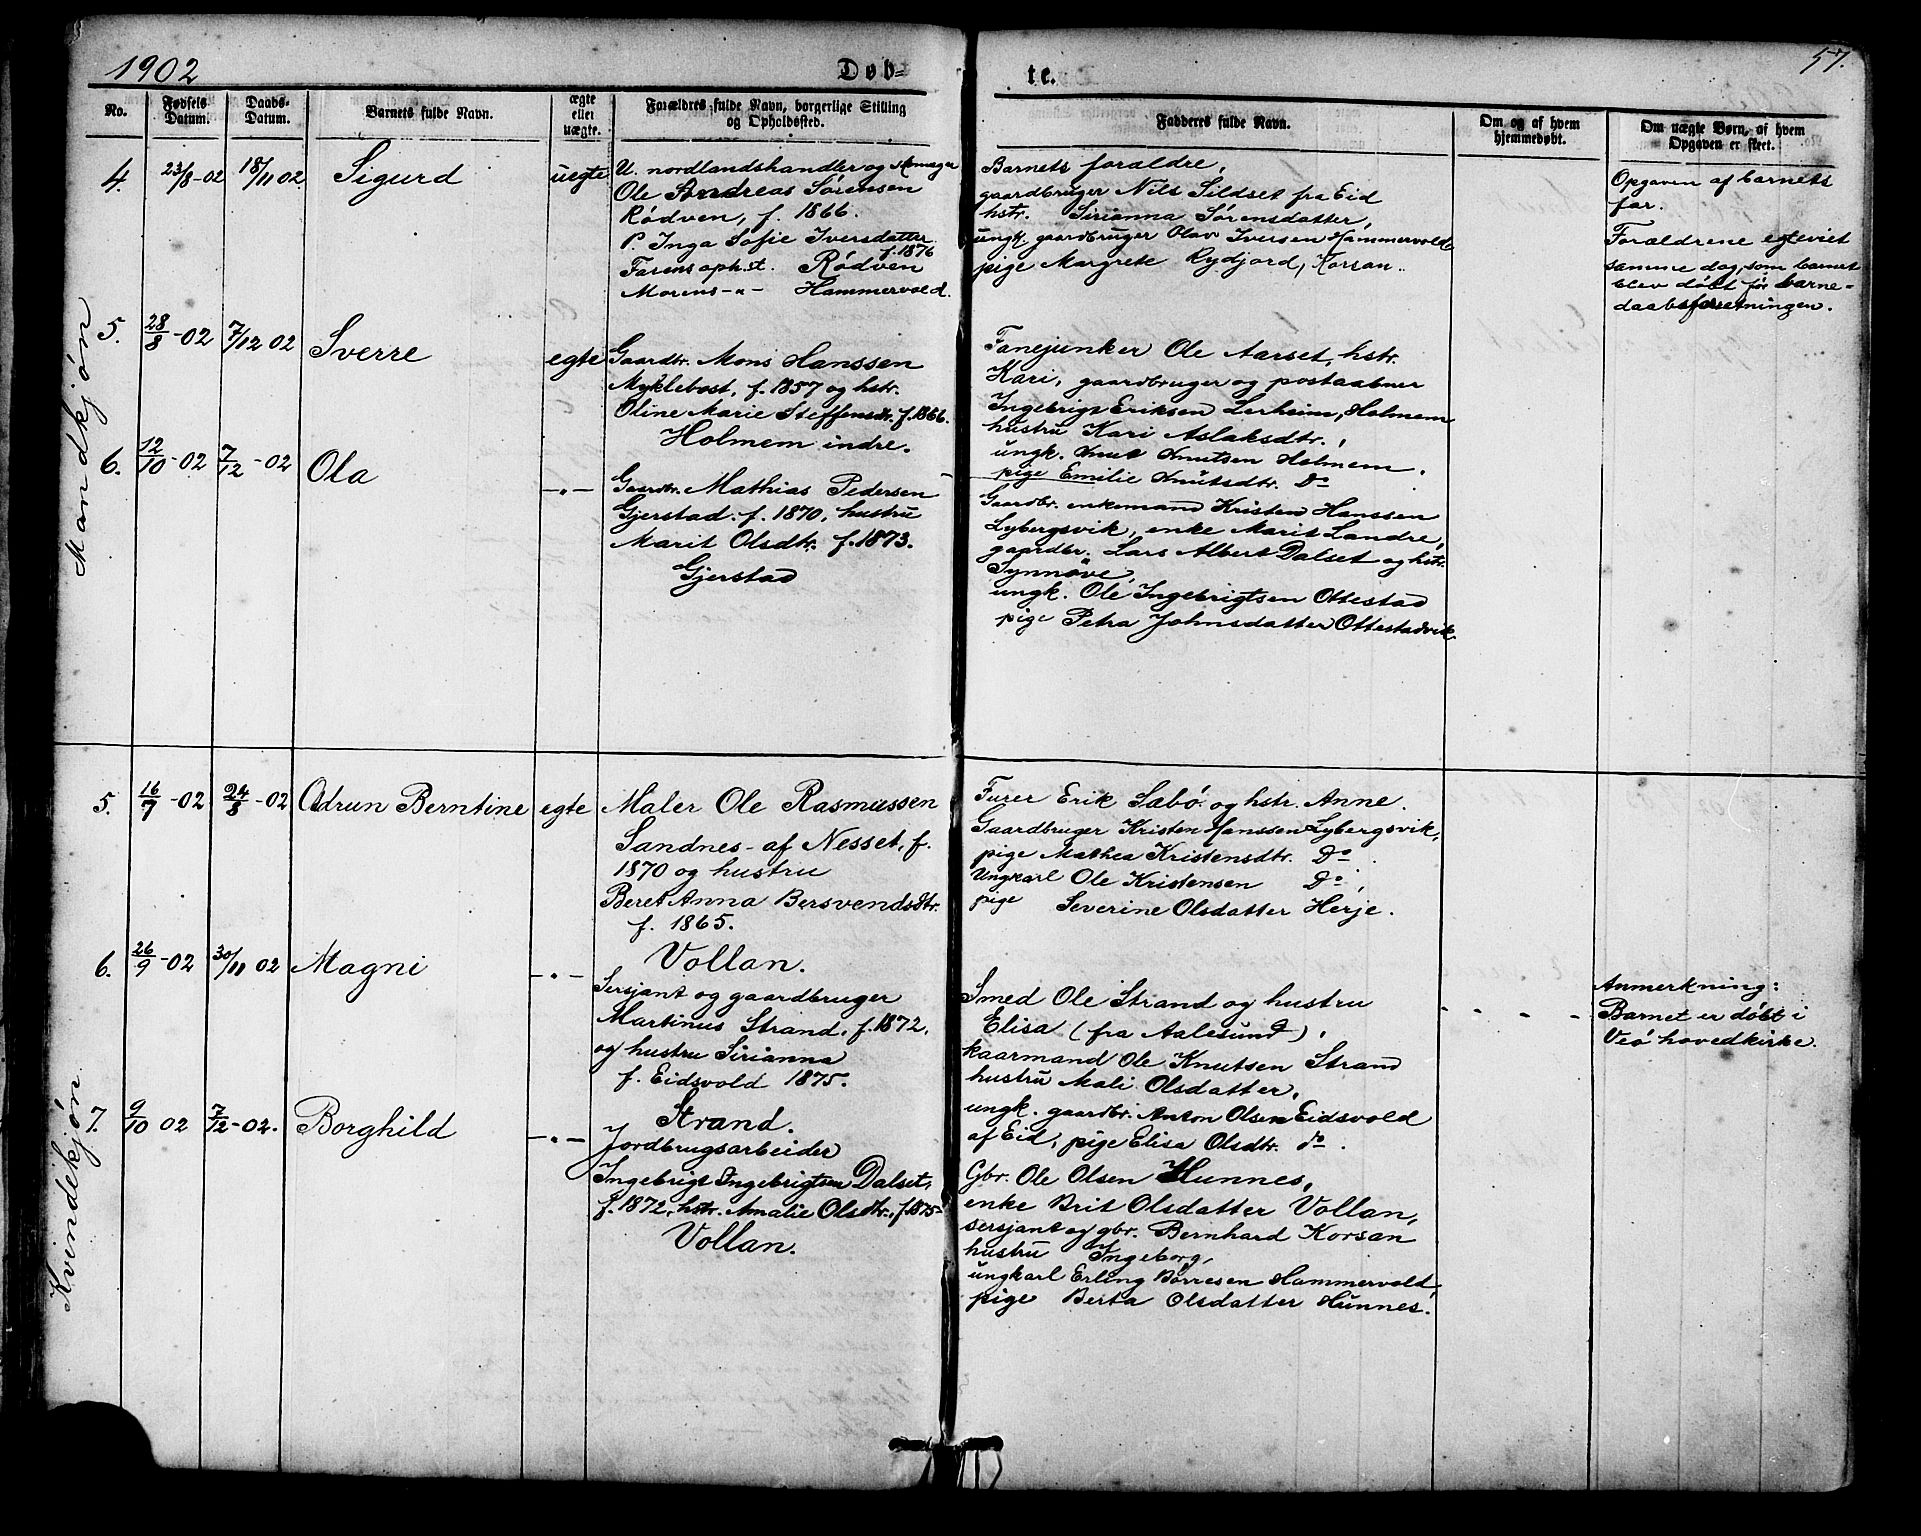 1902
Døb=
te.
57.
No.
Fødsels Datum.
Daabs- Datum.
Barnets fulde Navn.
ægte eller uægte.
Forældres fulde Navn, borgerlige Stilling og Opholdssted.
Fadderes fulde Navn.
Om og af hvem hjemmedøbt.
Om uægte Børn, af hvem Opgaven er skeet.
Mandkjøn
4.
23/8-02
18/11 02
Sigurd
uegte
U. nordlandshandler og skomager
Ole Andreas Sørensen
Rødven, f. 1866.
P. Inga Sofie Iversdatter
f. 1876
Farens oph.st. Rødven
Morens -"- Hammervold.
Barnets forældre,
gaardbruger Nils Sildset fra Eid
hstr. Sirianna Sørensdatter,
ungk. gaardbruger Olav Iversen Hammervold
pige Margrete Rydjord, Korsan.
Opgaven af barnets
far.
Forældrene egteviet
samme dag, som barnet
blev døbt før barne-
daabsforretningen.
5.
28/8-02
7/12 02
Sverre
egte
Gaardbr. Mons Hanssen
Myklebost, f. 1857 og hstr.
Oline Marie Steffensdtr. f. 1866.
Holmem indre.
Fanejunker Ole Aarset, hstr.
Kari, gaardbruger og postaabner
Ingebrigt Eriksen Lerheim, Holmem
hustru Kari Aslaksdtr.,
ungk. Knut Knutsen Holmem.
pige Emilie Knutsdtr. Do
6.
12/10-02
7/12-02
Ola
-"-
Gaardbr. Mathias Pedersen
Gjerstad. f. 1870, hustru
Marit Olsdtr. f. 1873.
Gjerstad
Gaardbr. enkemand Kristen Hanssen
Lybergsvik, enke Marit Landre,
gaardbr. Lars Albert Dalset og hstr.
Synnøve,
ungk. Ole Ingebrigtsen Ottestad
pige Petra Johnsdatter Ottestadvik
Kvindekjøn
5.
16/7-02
24/8-02
Odrun Berntine
egte
Maler Ole Rasmussen
Sandnes - af Nesset, f.
1870 og hustru
Beret Anna Bersvendsdtr.
f. 1865.
Vollan.
Furer Erik Sæbø og hstr. Anne.
Gaardbruger Kristen Hanssen Lybergsvik,
pige Mathea Kristensdtr. Do.
Ungkarl Ole Kristensen Do,
pige Severine Olsdatter Herje.
6.
26/9-02
30/11 02
Magni
-"-
Sersjant og gaardbruger
Martinus Strand, f. 1872,
og hustru Sirianna
f. Eidsvold 1875.
Strand.
Smed Ole Strand og hustru
Elisa (fra Aalesund),
kaarmand Ole Knutsen Strand
hustru Mali Olsdatter,
ungk. gaardbr. Anton Olsen Eidsvold
af Eid, pige Elisa Olsdtr. do.
Anmerkning:
Barnet er døbt i
Veø hovedkirke.
7.
9/10 02
7/12-02.
Borghild
-"-
Jordbrugsarbeider
Ingebrigt Ingebrigtsen Dalset,
f. 1872, hstr. Amalie Olsdtr., f. 1875
Vollan.
Gbr. Ole Olsen Hunnes,
enke Brit Olsdatter Vollan,
sersjant og gbr. Bernhard Korsan
hustru Ingeborg,
ungkarl Erling Børresen Hammervold,
pige Berta Olsdatter Hunnes.